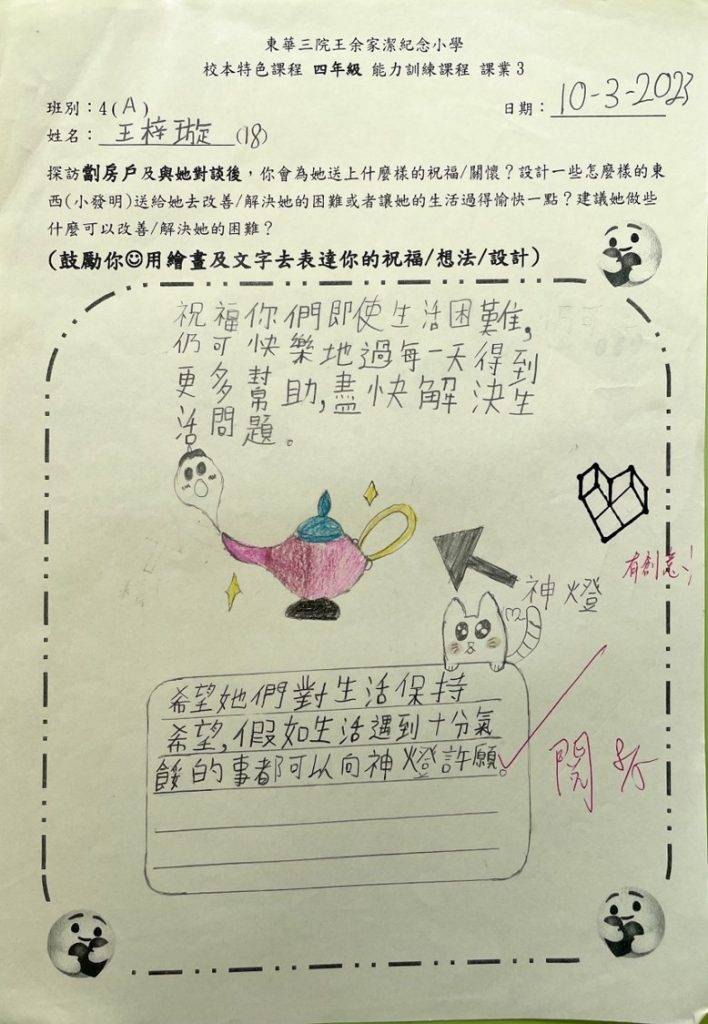 東華三院王余家潔紀念小學
校本特色課程 四年級 能力訓練課程 課業3
班別：4(A)
日期：10-3-2023
姓名：王梓璇(18)
探訪劏房戶及與她對談後，你會為她送上什麼樣的祝福/關懷？設計一些怎麼樣的東
西(小發明)送給她去改善/解決她的困難或者讓她的生活過得愉快一點？建議她做些
什麼可以改善/解決她的困難？
(鼓勵你☺用繪畫及文字去表達你的祝福/想法/設計)
祝福你們即使生活困難，
仍可快樂地過每一天得到
更多幫助，盡快解決生
活問題。
有創意！
神燈
希望她們對生活保持
希望，假如生活遇到十分氣
餒的事都可以向神燈許願。
閱